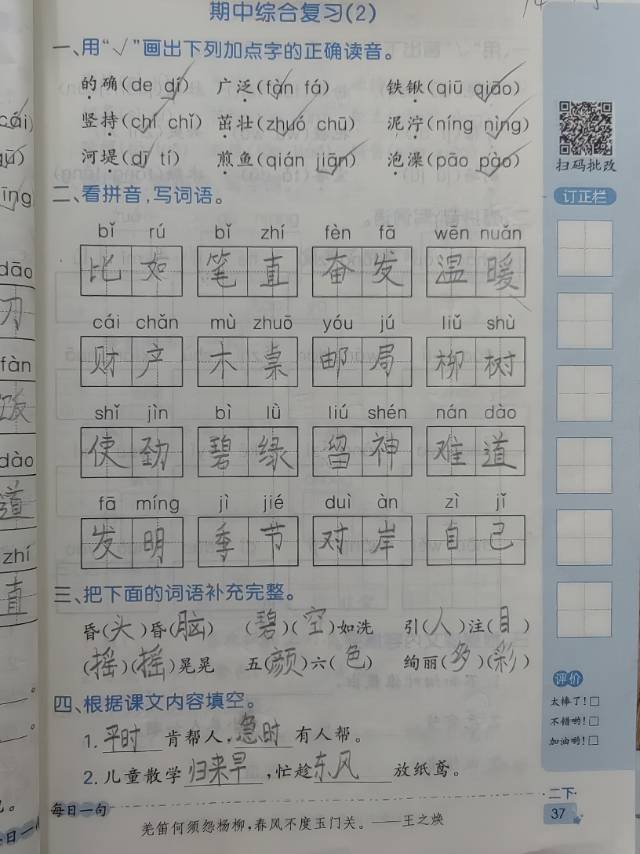 期中综合复习(2)
一、用“√”画出下列加点字的正确读音。
的确(de dí) 广泛(fàn fá) 铁锹(qiū qiāo)
竖持(chí chǐ) 茁壮(zhuó chū) 泥泞(níng nìng)
河堤(dī tí) 煎鱼(qián jiān) 泡澡(pāo pào)
二、看拼音,写词语。
bǐ rú bǐ zhí fèn fā wēn nuǎn
比如 笔直 奋发 温暖
cái chǎn mù zhuō yóu jú liǔ shù
财产 木桌 邮局 柳树
shǐ jìn bì lǜ liú shén nán dào
使劲 碧绿 留神 难道
fā míng jì jié duì àn zì jǐ
发明 季节 对岸 自己
三、把下面的词语补充完整。
昏(头)昏(脑) (碧)(空)如洗 引(人)注(目)
(摇)(摇)晃晃 五(颜)六(色) 绚丽(多)(彩)
四、根据课文内容填空。
1.平时肯帮人,急时有人帮。
2.儿童散学归来早,忙趁东风放纸鸢。
每日一句
羌笛何须怨杨柳,春风不度玉门关。——王之焕
扫码批改
订正栏
评价
太棒了!□
不错哟!□
加油哟!□
二下
37
cái)
īng
dāo
刀
fàn
dào
道
zhí
直